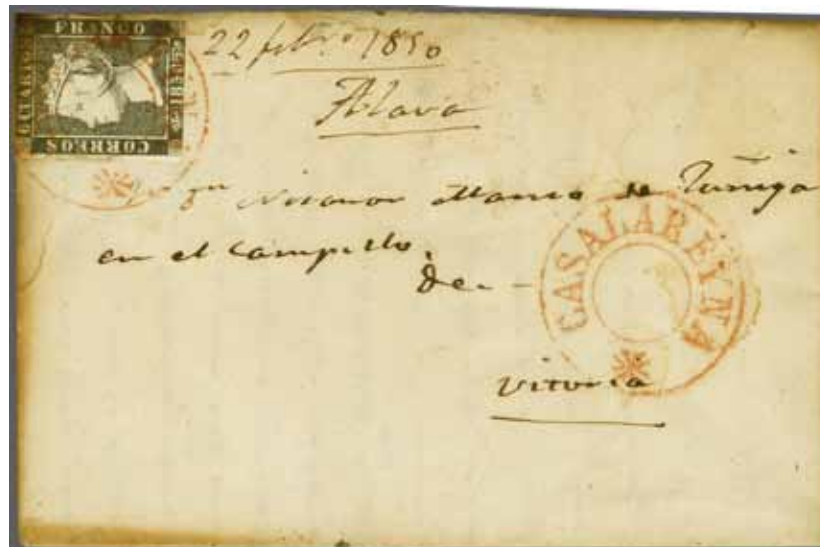 FRANCO
CUARTOS
CORREOS
22 febro 1850
Alava
Nicanor Manso de Zuñiga
en el Campillo.
de
CASALAREYNA
Vitoria